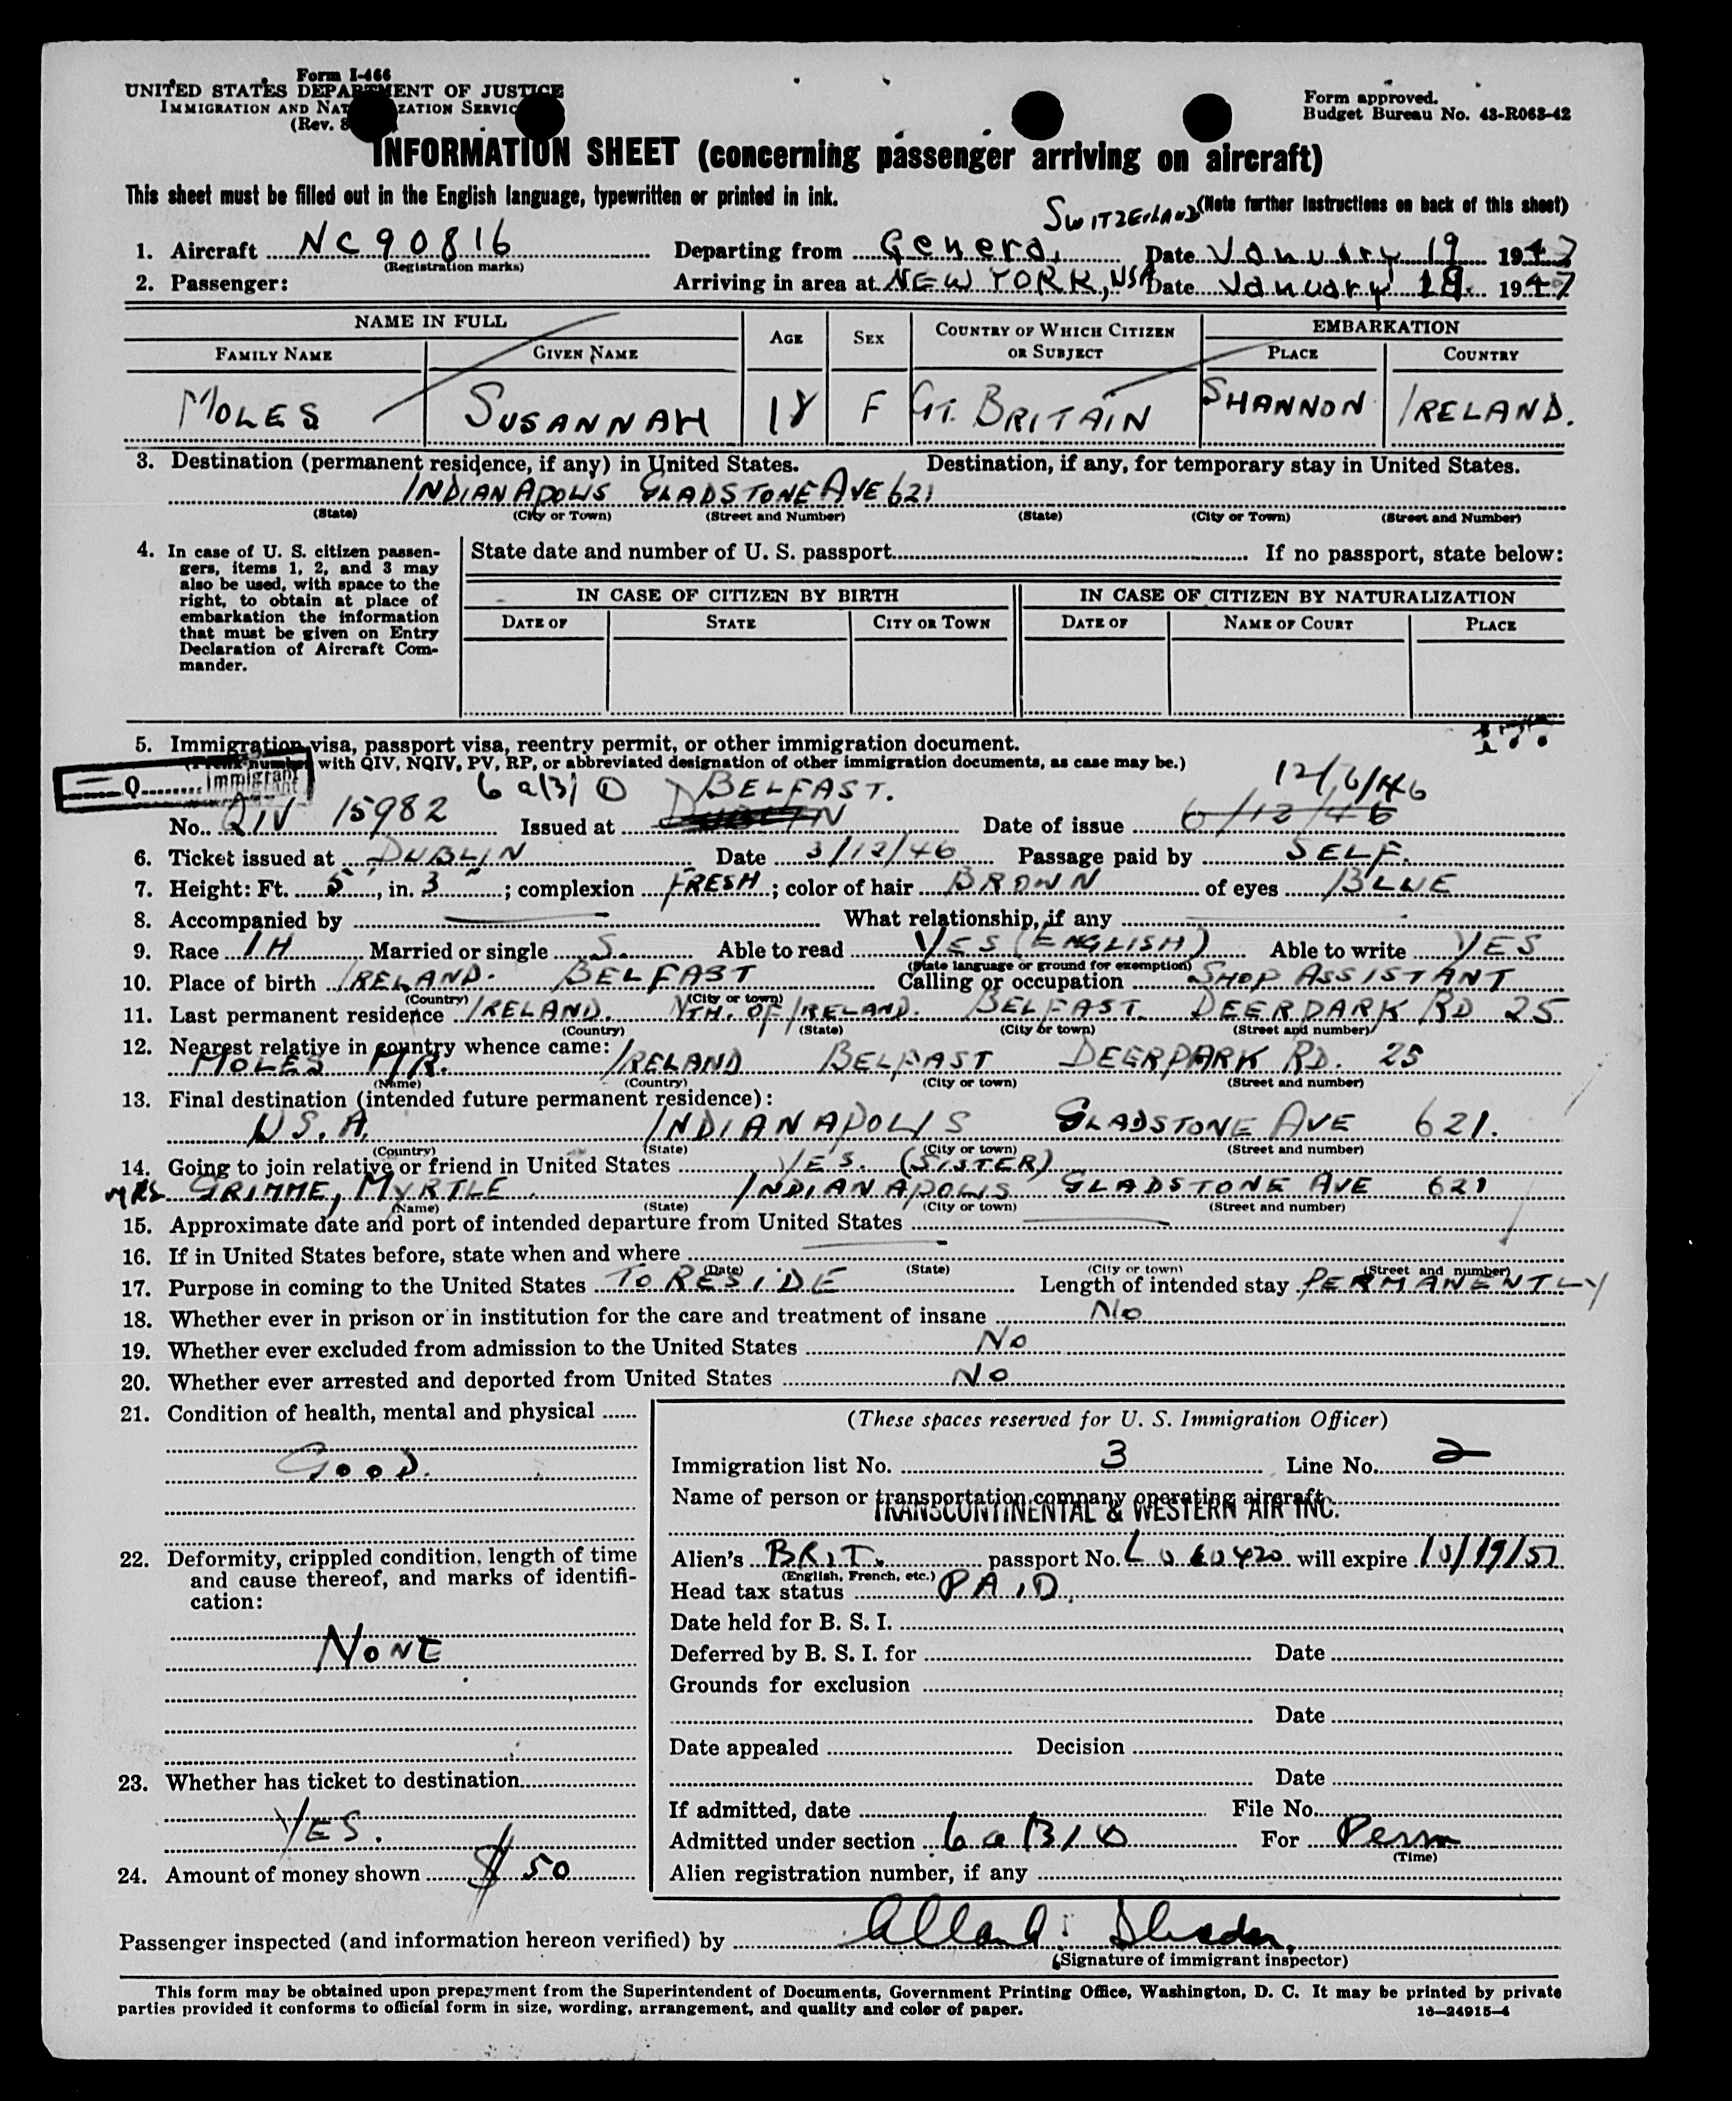 Form I-466
UNITED STATES DEPARTMENT OF JUSTICE
IMMIGRATION AND NATURALIZATION SERVICE
(Rev.
Form approved.
Budget Bureau No. 43-R063-42
INFORMATION SHEET (concerning passenger arriving on aircraft)
This sheet must be filled out in the English language, typewritten or printed in ink.
SWITZERLAND (Note further instructions on back of this sheet)
1. Aircraft NC90816 Departing from Geneva, Date January 19 1947
(Registration marks)
2. Passenger: Arriving in area at NEW YORK, USA Date January 19 1947
NAME IN FULL AGE SEX COUNTRY OF WHICH CITIZEN OR SUBJECT EMBARKATION
FAMILY NAME GIVEN NAME PLACE COUNTRY
MOLES SUSANNAH 18 F GT. BRITAIN SHANNON IRELAND.
3. Destination (permanent residence, if any) in United States. Destination, if any, for temporary stay in United States.
INDIANAPOLIS GLADSTONE AVE 621
(State) (City or Town) (Street and Number) (State) (City or Town) (Street and Number)
4. In case of U. S. citizen passengers, items 1, 2, and 3 may also be used, with space to the right, to obtain at place of embarkation the information that must be given on Entry Declaration of Aircraft Commander.
State date and number of U. S. passport If no passport, state below:
IN CASE OF CITIZEN BY BIRTH IN CASE OF CITIZEN BY NATURALIZATION
DATE OF STATE CITY OR TOWN DATE OF NAME OF COURT PLACE
5. Immigration visa, passport visa, reentry permit, or other immigration document.
(Prefix number with QIV, NQIV, PV, RP, or abbreviated designation of other immigration documents, as case may be.)
Q Immigrant 6 a(3) BELFAST. 12/6/46
No. QIV 15982 Issued at DUBLIN Date of issue 6/12/46
6. Ticket issued at DUBLIN Date 3/12/46 Passage paid by SELF.
7. Height: Ft. 5', in. 3"; complexion FRESH; color of hair BROWN of eyes BLUE
8. Accompanied by What relationship, if any
9. Race IH Married or single S. Able to read YES (ENGLISH) Able to write YES
(State language or ground for exemption)
10. Place of birth IRELAND. BELFAST Calling or occupation SHOP ASSISTANT
(Country) (City or town)
11. Last permanent residence IRELAND. NTH. OF IRELAND. BELFAST. DEERPARK RD 25
(Country) (State) (City or town) (Street and number)
12. Nearest relative in country whence came:
MOLES MR. IRELAND BELFAST DEERPARK RD. 25
(Name) (Country) (City or town) (Street and number)
13. Final destination (intended future permanent residence):
U.S.A. INDIANAPOLIS GLADSTONE AVE 621.
(Country) (State) (City or town) (Street and number)
14. Going to join relative or friend in United States YES. (SISTER)
MRS GRIMME, MYRTLE. INDIANAPOLIS GLADSTONE AVE 621
(Name) (State) (City or town) (Street and number)
15. Approximate date and port of intended departure from United States
16. If in United States before, state when and where
(Date) (State) (City or town) (Street and number)
17. Purpose in coming to the United States TO RESIDE Length of intended stay PERMANENTLY
18. Whether ever in prison or in institution for the care and treatment of insane No
19. Whether ever excluded from admission to the United States No
20. Whether ever arrested and deported from United States No
21. Condition of health, mental and physical
GOOD.
22. Deformity, crippled condition, length of time and cause thereof, and marks of identification:
NONE
23. Whether has ticket to destination
YES.
24. Amount of money shown $50
(These spaces reserved for U. S. Immigration Officer)
Immigration list No. 3 Line No. 2
Name of person or transportation company operating aircraft
TRANSCONTINENTAL & WESTERN AIR INC.
Alien's BRIT. passport No. L 060420 will expire
(English, French, etc.)
Head tax status PAID
Date held for B. S. I.
Deferred by B. S. I. for Date
Grounds for exclusion
Date
Date appealed Decision
Date
If admitted, date File No.
Admitted under section 6a(3)(1) For Perm
(Time)
Alien registration number, if any
Passenger inspected (and information hereon verified) by
(Signature of immigrant inspector)
This form may be obtained upon prepayment from the Superintendent of Documents, Government Printing Office, Washington, D. C. It may be printed by private
parties provided it conforms to official form in size, wording, arrangement, and quality and color of paper. 16—24915-4